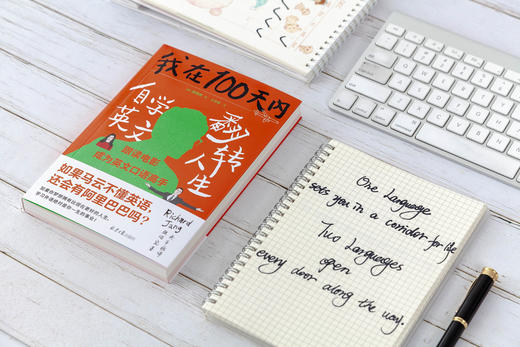 我在100天内
自学
英文
翻转
人生
跟读电影
成为英文口语高手
Richard
如果马云不懂英语，
还会有阿里巴巴吗？
One Language
sets you in a corridor for life
Two Languages
open
every door along the way.